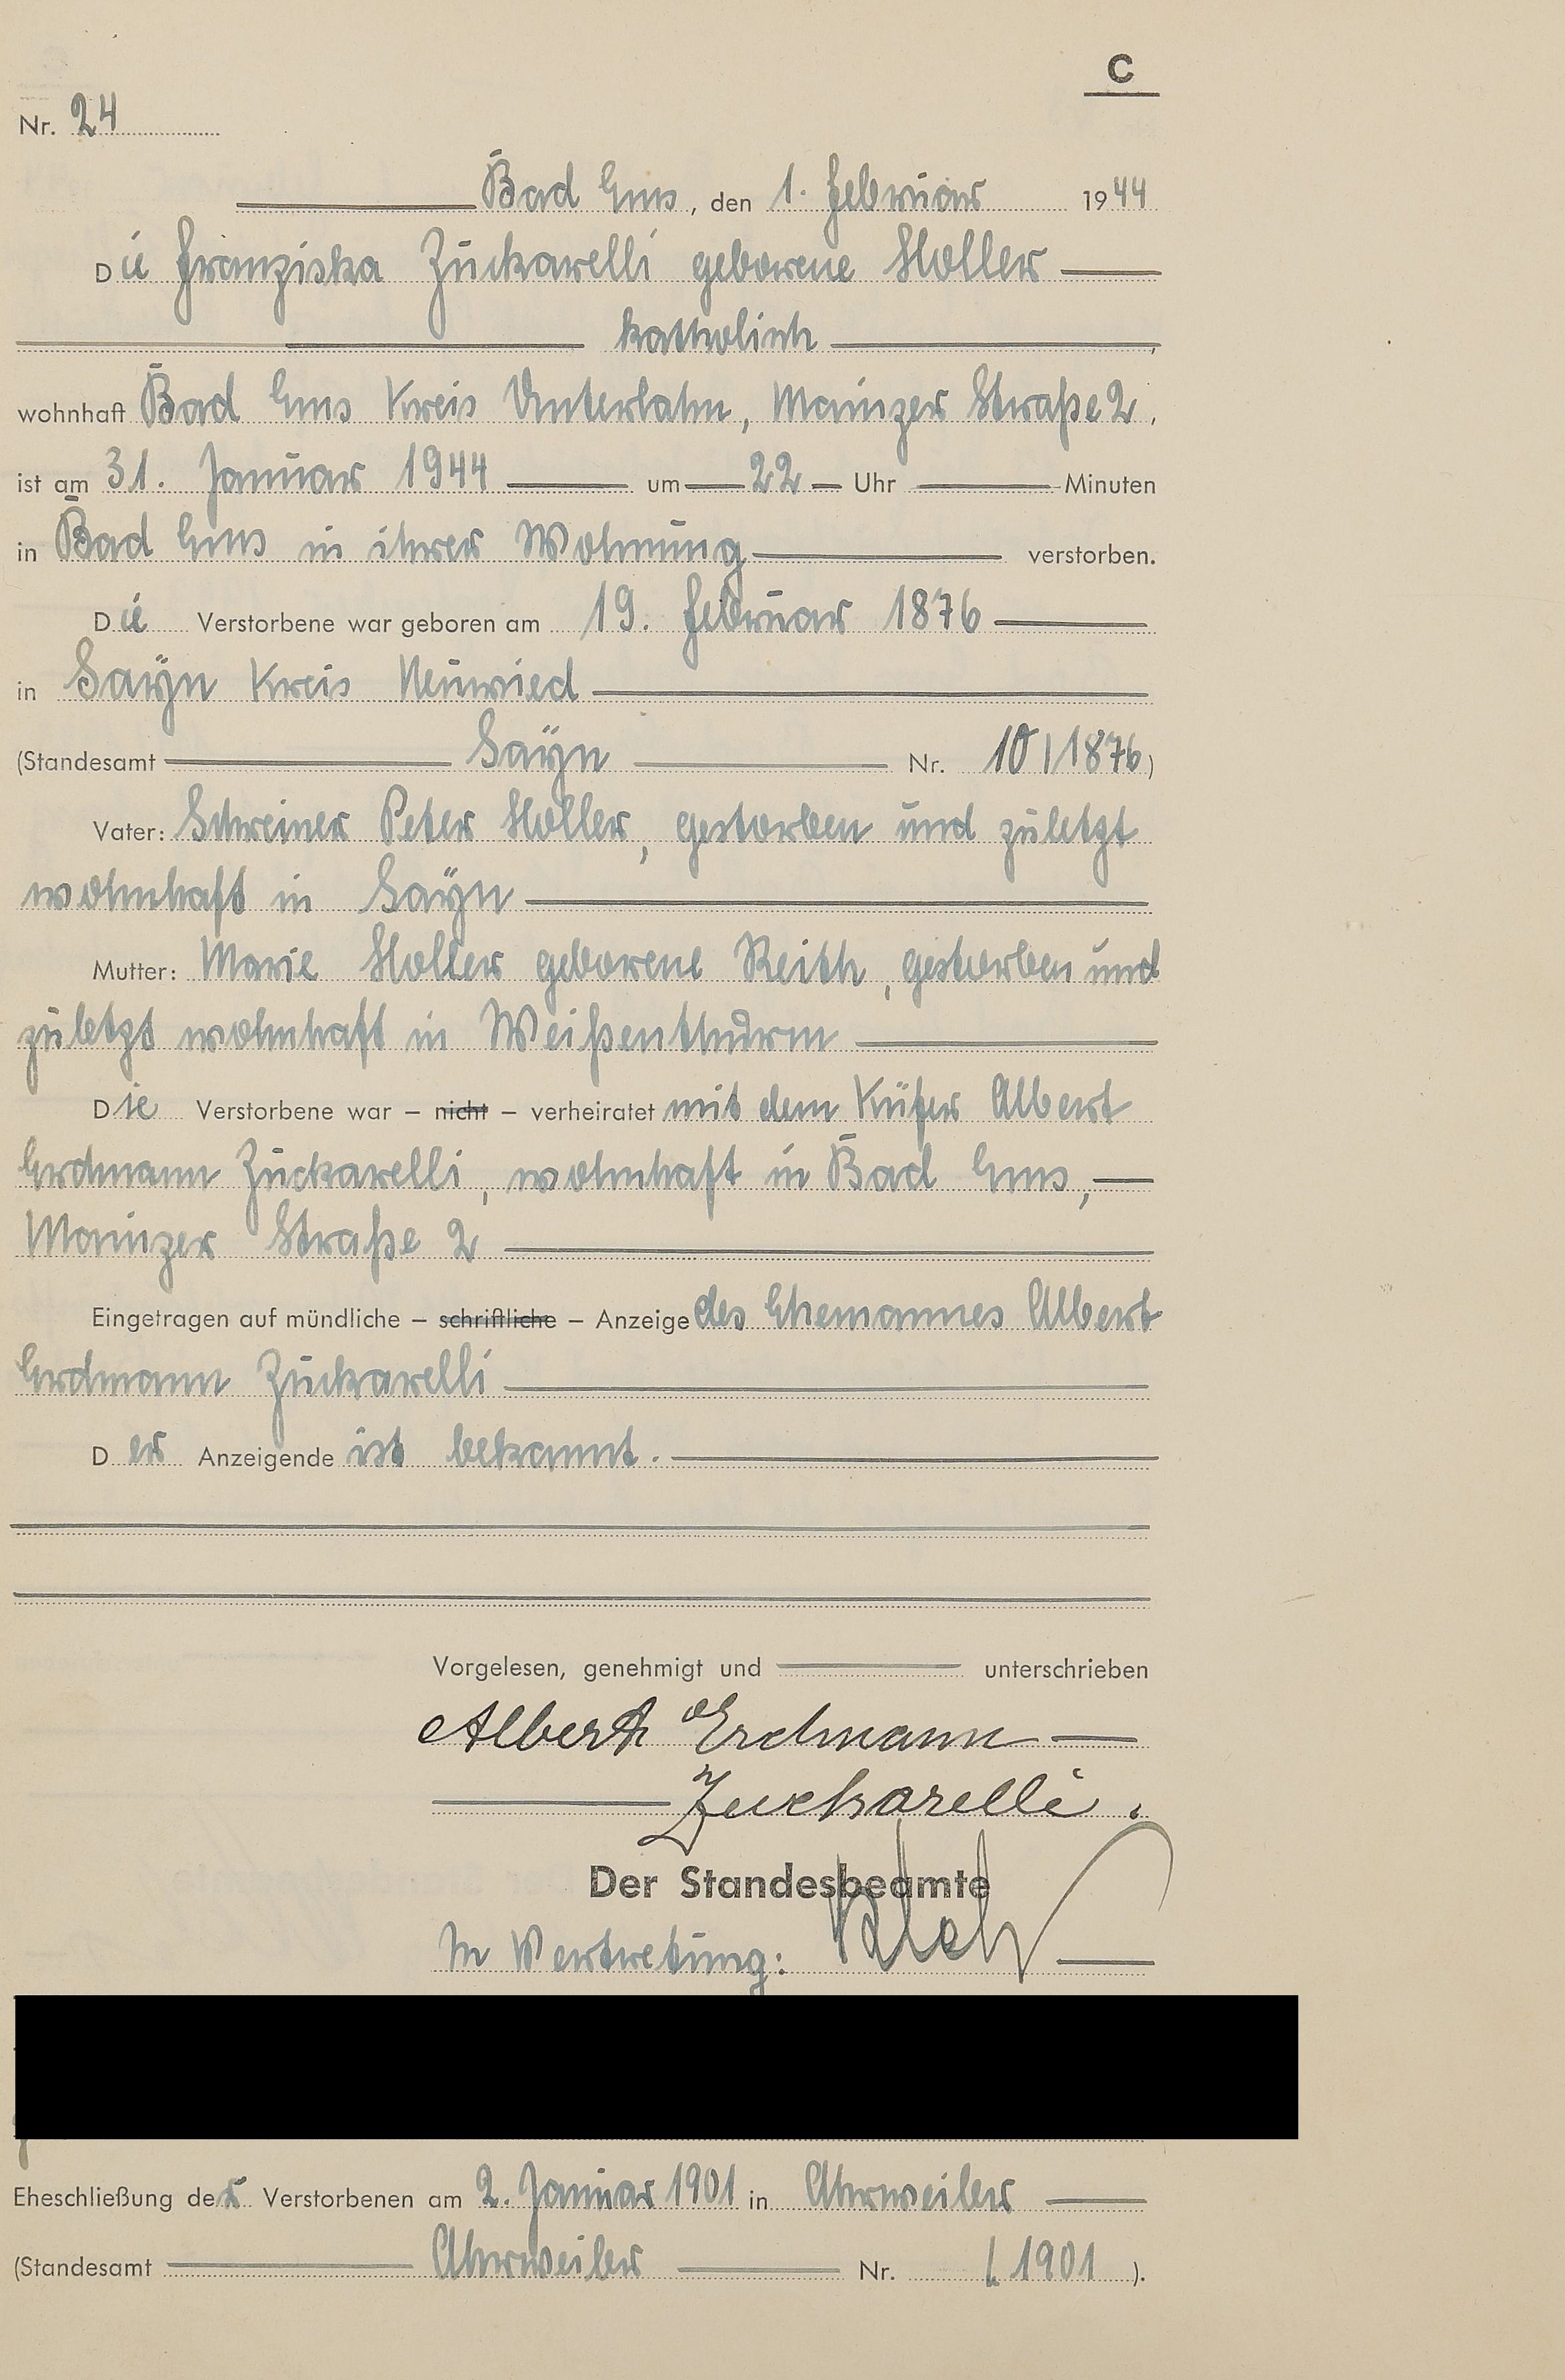 C
Nr. 24
Bad Ems, den 1. Februar 1944
Die Franziska Zuckarelli geborene Holler
katholisch
wohnhaft Bad Ems Kreis Unterlahn, Mainzer Straße 2,
ist am 31. Januar 1944 um 22 Uhr Minuten
in Bad Ems in ihrer Wohnung verstorben.
Die Verstorbene war geboren am 19. Februar 1876
in Sayn Kreis Neuwied
(Standesamt Sayn Nr. 10/1876)
Vater: Schreiner Peter Holler, gestorben und zuletzt
wohnhaft in Sayn
Mutter: Marie Holler geborene Reith, gestorben und
zuletzt wohnhaft in Weißenthurm
Die Verstorbene war – nicht – verheiratet mit dem Küfer Albert
Erdmann Zuckarelli, wohnhaft in Bad Ems,
Mainzer Straße 2
Eingetragen auf mündliche – schriftliche – Anzeige des Ehemannes Albert
Erdmann Zuckarelli
Der Anzeigende ist bekannt.
Vorgelesen, genehmigt und unterschrieben
Albert Erdmann
Zuckarelli.
Der Standesbeamte
In Vertretung:
Eheschließung der Verstorbenen am 2. Januar 1901 in Ahrweiler
(Standesamt Ahrweiler Nr. /1901).